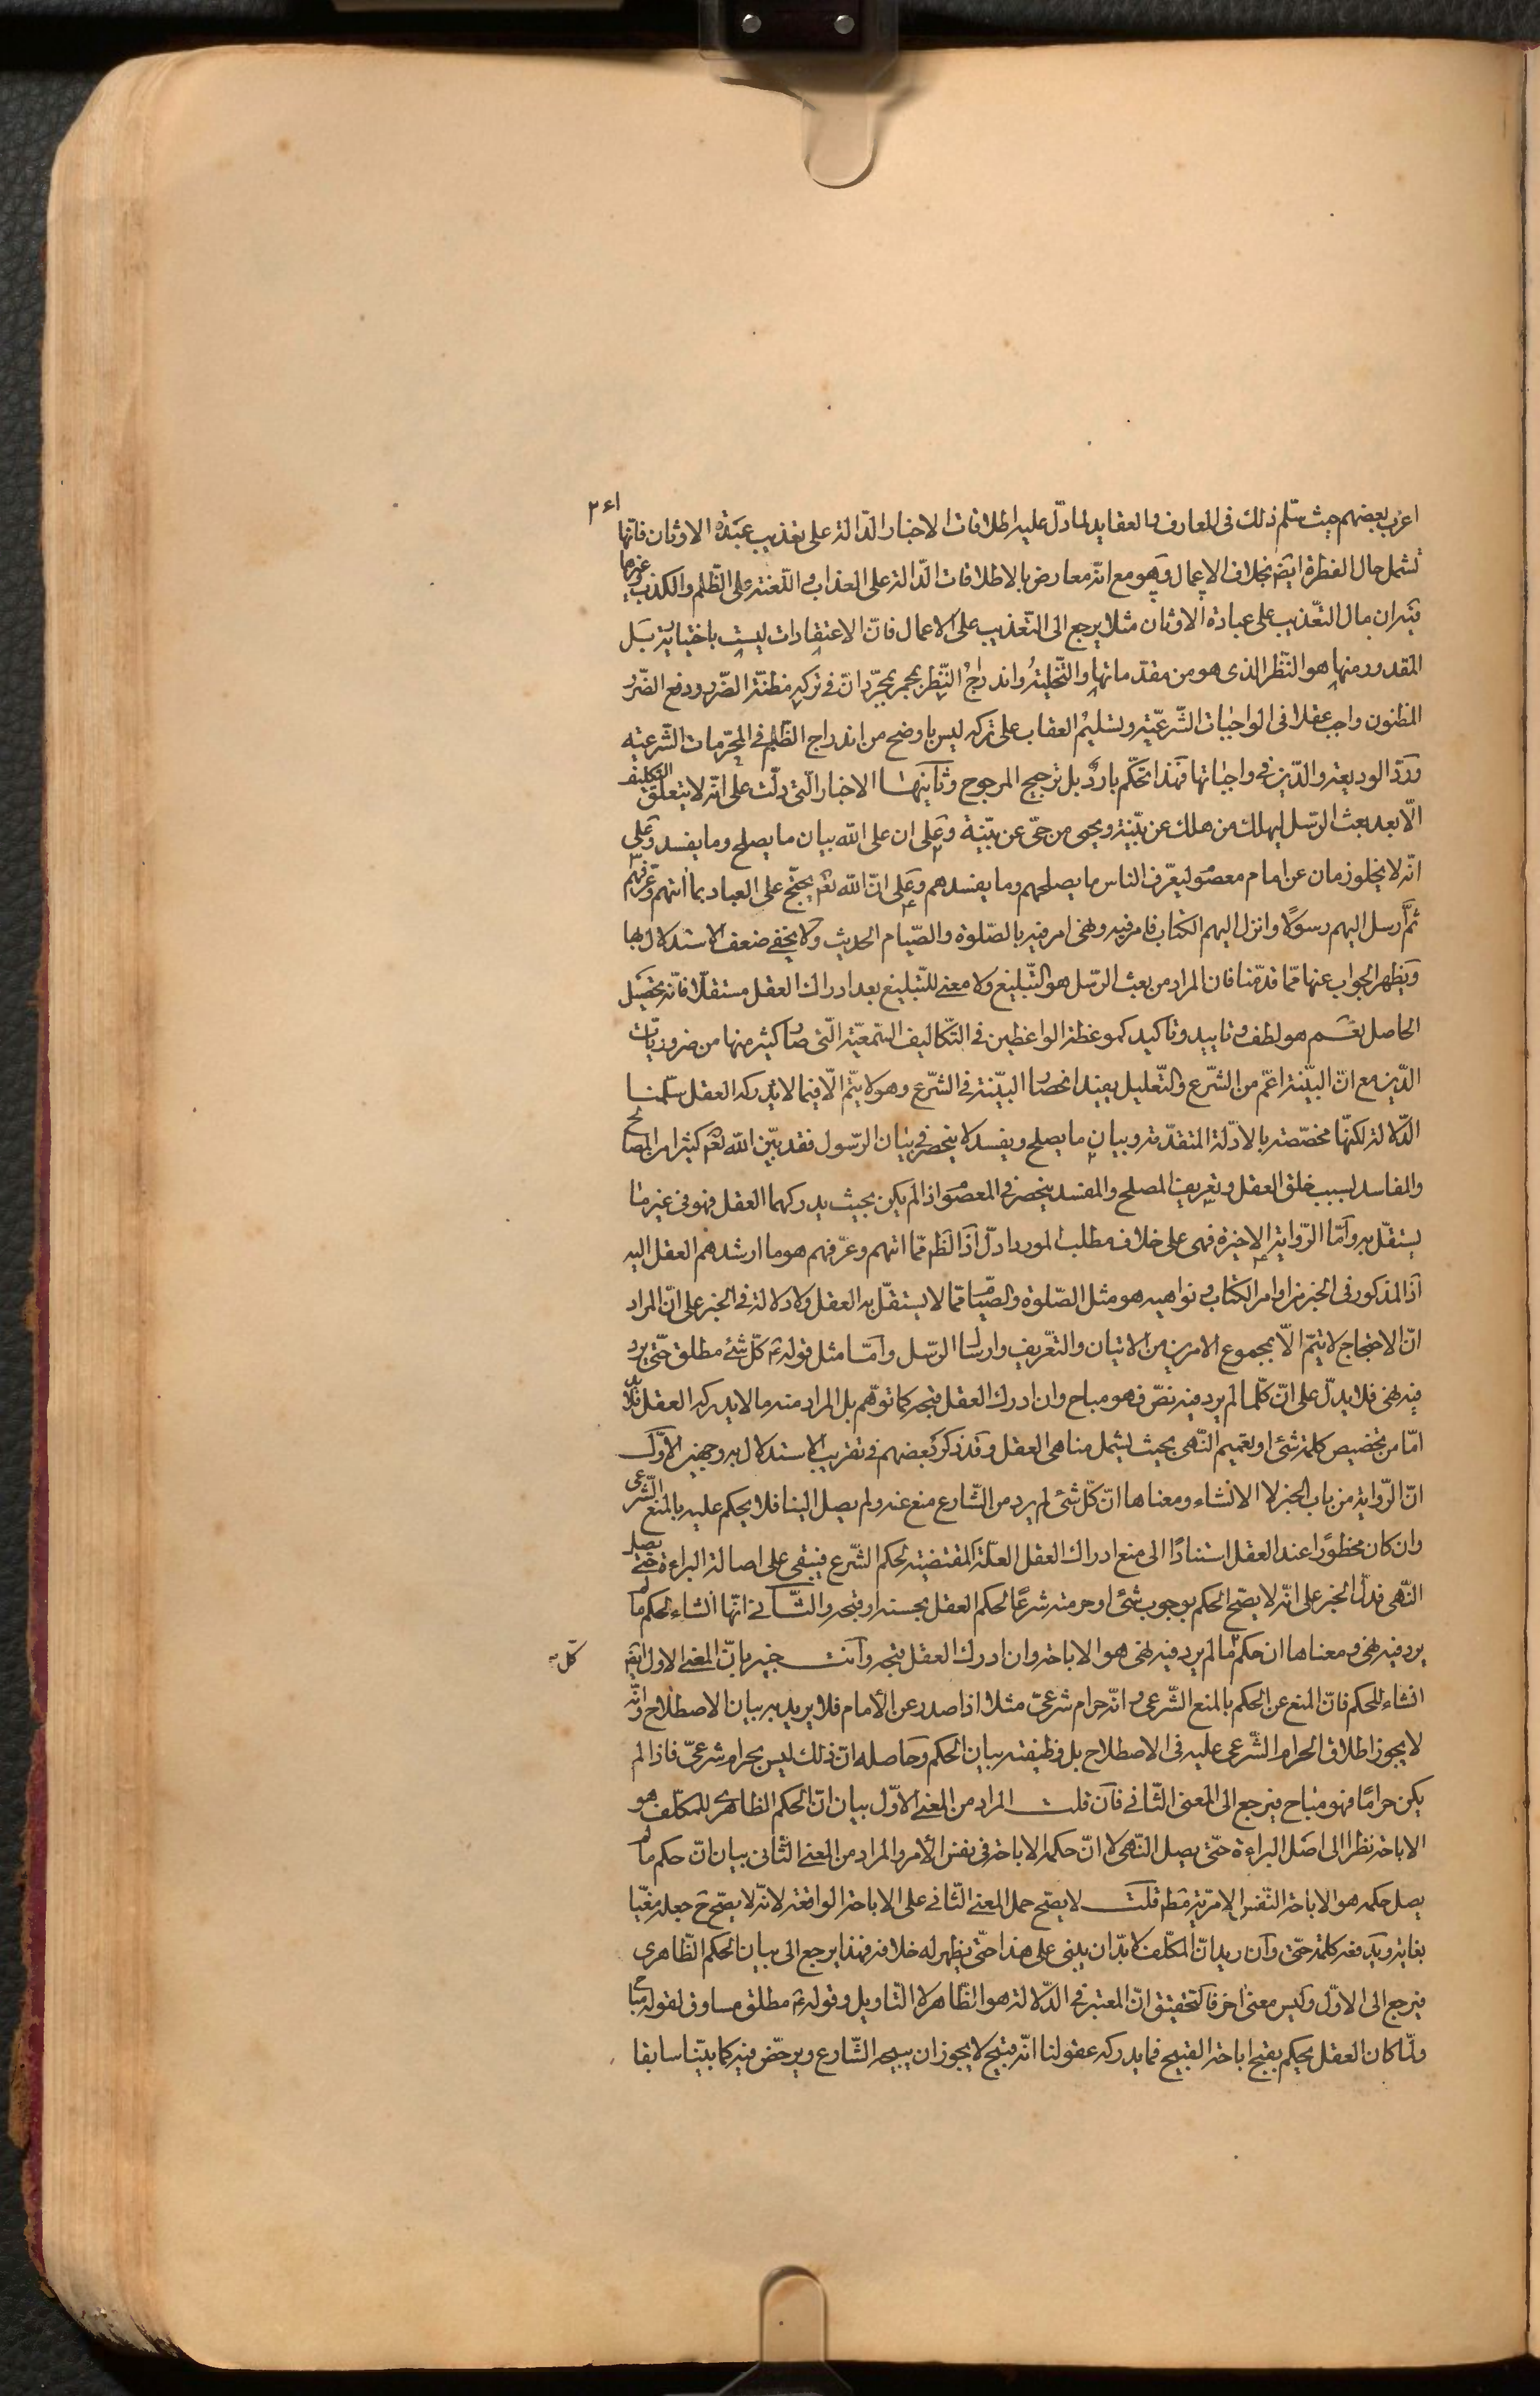 ٢٤١
اغرب بعضهم حيث سلّم ذلك فى المعارف والعقايد لما دلّ عليه اطلاقات الاخبار الدّالة على تعذيب عبدة الاوثان فانّها
تشمل حال الفطرة ايضا بخلاف الاعمال وهو مع انّه معارض بالاطلاقات الدّالة على العذاب واللّعنة على الظّلم والكذب وغيرها
فيه ان مال التّعذيب على عبادة الاوثان مثلا يرجع الى التّعذيب على الاعمال فانّ الاعتقادات ليست باختيارية بل
المقدور منها هو النّظر الذى هو من مقدّماتها والتّخلية واندراج النّظر بمجرّد انّ فى تركه مظنّة الضّرر ودفع الضّرر
المظنون واجب عقلا فى الواجبات الشّرعيّة وتسليم العقاب على تركه ليس باوضح من اندراج الظّلم فى المحرّمات الشّرعيّة
وردّ الوديعة والدّين فى واجباتها فهذا تحكّم بارد بل ترجيح المرجوح وثانيها الاخبار الّتى دلّت على انّه لا يتعلّق التكليف
الّا بعد بعث الرّسل ليهلك من هلك عن بيّنة ويحيى من حىّ عن بيّنة وعلى ان على الله بيان ما يصلح وما يفسد وعلى
انّه لا يخلو زمان عن امام معصوم ليعرّف الناس ما يصلحهم وما يفسدهم وعلى انّ الله تعم يحتجّ على العباد بما اتيهم وعرّفهم
ثمّ رسل اليهم رسولًا وانزل اليهم الكتاب فامر فيه ونهى امر فيه بالصّلوة والصّيام الحديث ولا يخفى ضعف الاستدلال بها
ويظهر الجواب عنها ممّا قدّمنا فان المراد من بعث الرّسل هو التّبليغ ولا معنى للتّبليغ بعد ادراك العقل مستقلّا فانّه تحصيل
الحاصل نعم هو لطف وتاييد وتاكيد كموعظة الواعظين فى التّكاليف السّمعيّة الّتى صار كثير منها من ضروريّات
الدّين مع انّ البيّنة اعمّ من الشّرع والتّعليل يفيد انحصار البيّنة فى الشّرع وهو لا يتمّ الّا فيما لا يدركه العقل سلّمنا
الدّلالة لكنّها مخصّصة بالادلّة المتقدّمة وبيان ما يصلح ويفسد لا ينحصر فى بيان الرّسول فقد بيّن الله تعم كثيرا من المصالح
والمفاسد بسبب خلق العقل وتعريف المصلح والمفسد ينحصر فى المعصوم اذا لم يكن بحيث يدركهما العقل فهو فى غير ما
يستقلّ به وامّا الرّواية الاخيرة فهى على خلاف مطلب المورد ادلّ اذا لظ ممّا اتيهم وعرّفهم هو ما ارشدهم العقل اليه
اذ المذكور فى الخبر من اوامر الكتاب ونواهيه هو مثل الصّلوة والصّيام ممّا لا يستقلّ به العقل ولا دلالة فى الخبر على انّ المراد
انّ الاحتجاج لا يتمّ الّا بمجموع الامرين من الاتيان والتعّريف وارسال الرّسل وامّا مثل قوله ع كلّ شئ مطلق حتّى يرد
فيه نهى فلا يدلّ على انّ كلّما لم يرد فيه نصّ فهو مباح وان ادرك العقل قبحه كما توهّم بل المراد منه ما لا يدركه العقل فلا بدّ
امّا من تخصيص كلمة شئ او تعميم النّهى بحيث يشمل مناهى العقل وقد ذكر بعضهم فى تقريب الاستدلال به وجهين الاوّل
انّ الرّواية من باب الخبر لا الانشاء ومعناها انّ كلّ شئ لم يرد من الشّارع منع عنه ولم يصل الينا فلا يحكم عليه بالمنع الشّرعى
وان كان محظورًا عند العقل استنادًا الى منع ادراك العقل العلّة المقتضية لحكم الشّرع فيبقى على اصالة البراءة حتّى يصل
النّهى فدلّ الخبر على انّه لا يصحّ الحكم بوجوب شئ او حرمته شرعًا لحكم العقل بحسنه او قبحه والثّانى انّها انشاء لحكم ما لم
يرد فيه نهى ومعناها ان حكم ما لم يرد فيه نهى هو الاباحة وان ادرك العقل قبحه وانت خبير بانّ المعنى الاول ايضا
كلّ به
انشاء للحكم فانّ المنع عن الحكم بالمنع الشّرعى وانّه حرام شرعىّ مثلا اذا صدر عن الأمام فلا يريد به بيان الاصطلاح وانّه
لا يجوز اطلاق الحرام الشّرعى عليه فى الاصطلاح بل وظيفته بيان الحكم وحاصله انّ ذلك ليس بحرام شرعىّ فاذا لم
يكن حرامًا فهو مباح فيرجع الى المعنى الثّانى فان قلت المراد من المعنى الاوّل بيان انّ الحكم الظاهرى للمكلّف هو
الاباحة نظرا الى اصل البراءة حتّى يصل النّهى لا انّ حكمه الاباحة فى نفس الأمر والمراد من المعنى الثّانى بيان انّ حكم ما لم
يصل حكمه هو الاباحة النّفس الامريّة مط قلت لا يصحّ حمل المعنى الثّانى على الاباحة الواقعة لانّه لا يصحّ ح جعله مغيّا
بغاية ويدفعه كلمة حتّى وان اريد انّ المكلّف لا بدّ ان يبنى على هذا حتّى يظهر له خلافه فهذا يرجع الى بيان الحكم الظّاهرى
فيرجع الى الاوّل وليس معنى اخر فالتحقيق انّ المعتبر فى الدّلالة هو الظّاهر لا التّاويل وقوله ع مطلق مساوق لقوله مباح
ولمّا كان العقل يحكم بقبح اباحة القبيح فما يدركه عقولنا انّه قبيح لا يجوز ان يبيحه الشّارع ويرخّص فيه كما بيّنا سابقا